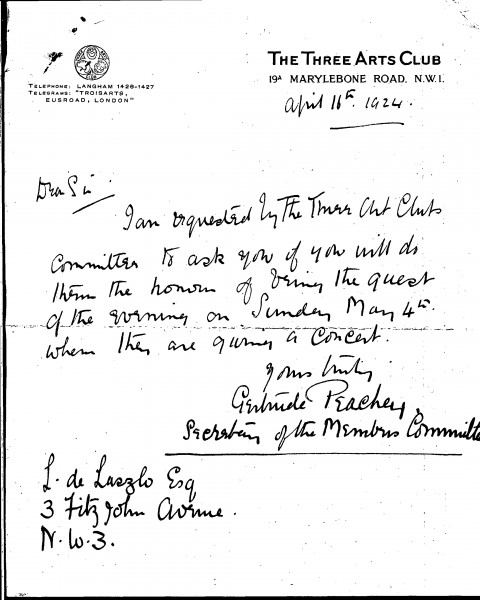 THE THREE ARTS CLUB
19A MARYLEBONE ROAD, N.W.1.
TELEPHONE: LANGHAM 1426-1427
TELEGRAMS: "TROISARTS,
EUSROAD, LONDON"
April 11th. 1924.
Dear Sir
I am requested by The Three Art Clubs
Committee to ask you if you will do
them the honour of being the guest
of the evening on Sunday May 4th.
when they are giving a Concert.
Yours truly
Gertrude Peachey,
Secretary of the Members Committe
L. de Laszlo Esq
3 Fitz John Avenue.
N.W.3.